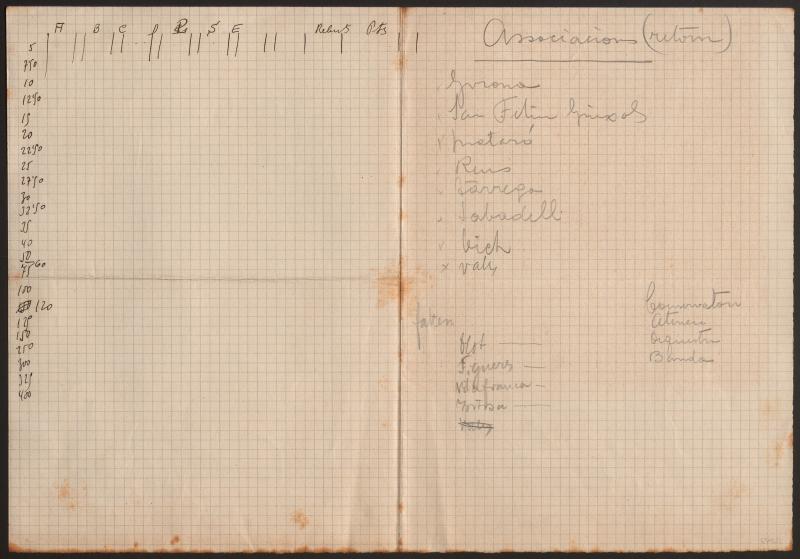 A B C S E Rebuts Pts
5
7'50
10
12'50
15
20
22'50
25
27'50
30
32'50
35
40
50
60
75
100
120
125
150
250
300
325
400
Associacions (retorn)
Gerona
San Feliu Guixols
Mataró
Reus
Tàrrega
Sabadell
Vich
x Valls
falten
Olot —
Figueres —
Vilafranca —
Tortosa —
Valls
Conservatori
Ateneu
Orquestra
Banda